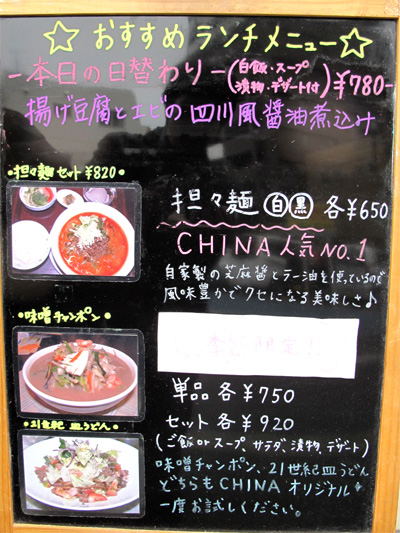 ☆ おすすめ ランチメニュー ☆
-本日の日替わり-(白飯・スープ 漬物・デザート付) ¥780-
揚げ豆腐とエビの四川風醤油煮込み
•担々麺セット ¥820•
担々麺 白 黒 各¥650
CHINA人気NO.1
自家製の芝麻醤とラー油を使っているので
風味豊かでクセになる美味しさ♪
•味噌チャンポン•
季節限定!
単品 各¥750
セット 各¥920
(ご飯orスープ、サラダ、漬物、デザート)
•21世紀 皿うどん•
味噌チャンポン、21世紀皿うどん
どちらもCHINAオリジナル
一度お試しください。